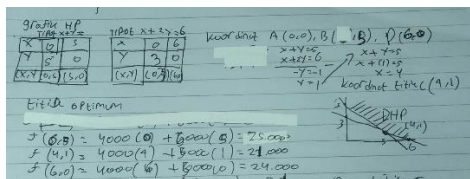 grafik HP
titik x+y=5
x 0 5
y 5 0
(x,y) (0,5) (5,0)
titik x+2y=6
x 0 6
y 3 0
(x,y) (0,3) (6,0)
koordinat A (0,0), B ( ,5), D (6,0)
x+y=5
x+2y=6
-y=-1
y=1
x+y=5
x+(1)=5
x=4
koordinat titik C (4,1)
titik optimum
f (0,5) = 4000 (0) + 5000 (5) = 25.000
f (4,1) = 4000 (4) + 5000 (1) = 21.000
f (6,0) = 4000 (6) + 5000 (0) = 24.000
DHP
(4,1)
3
5
6